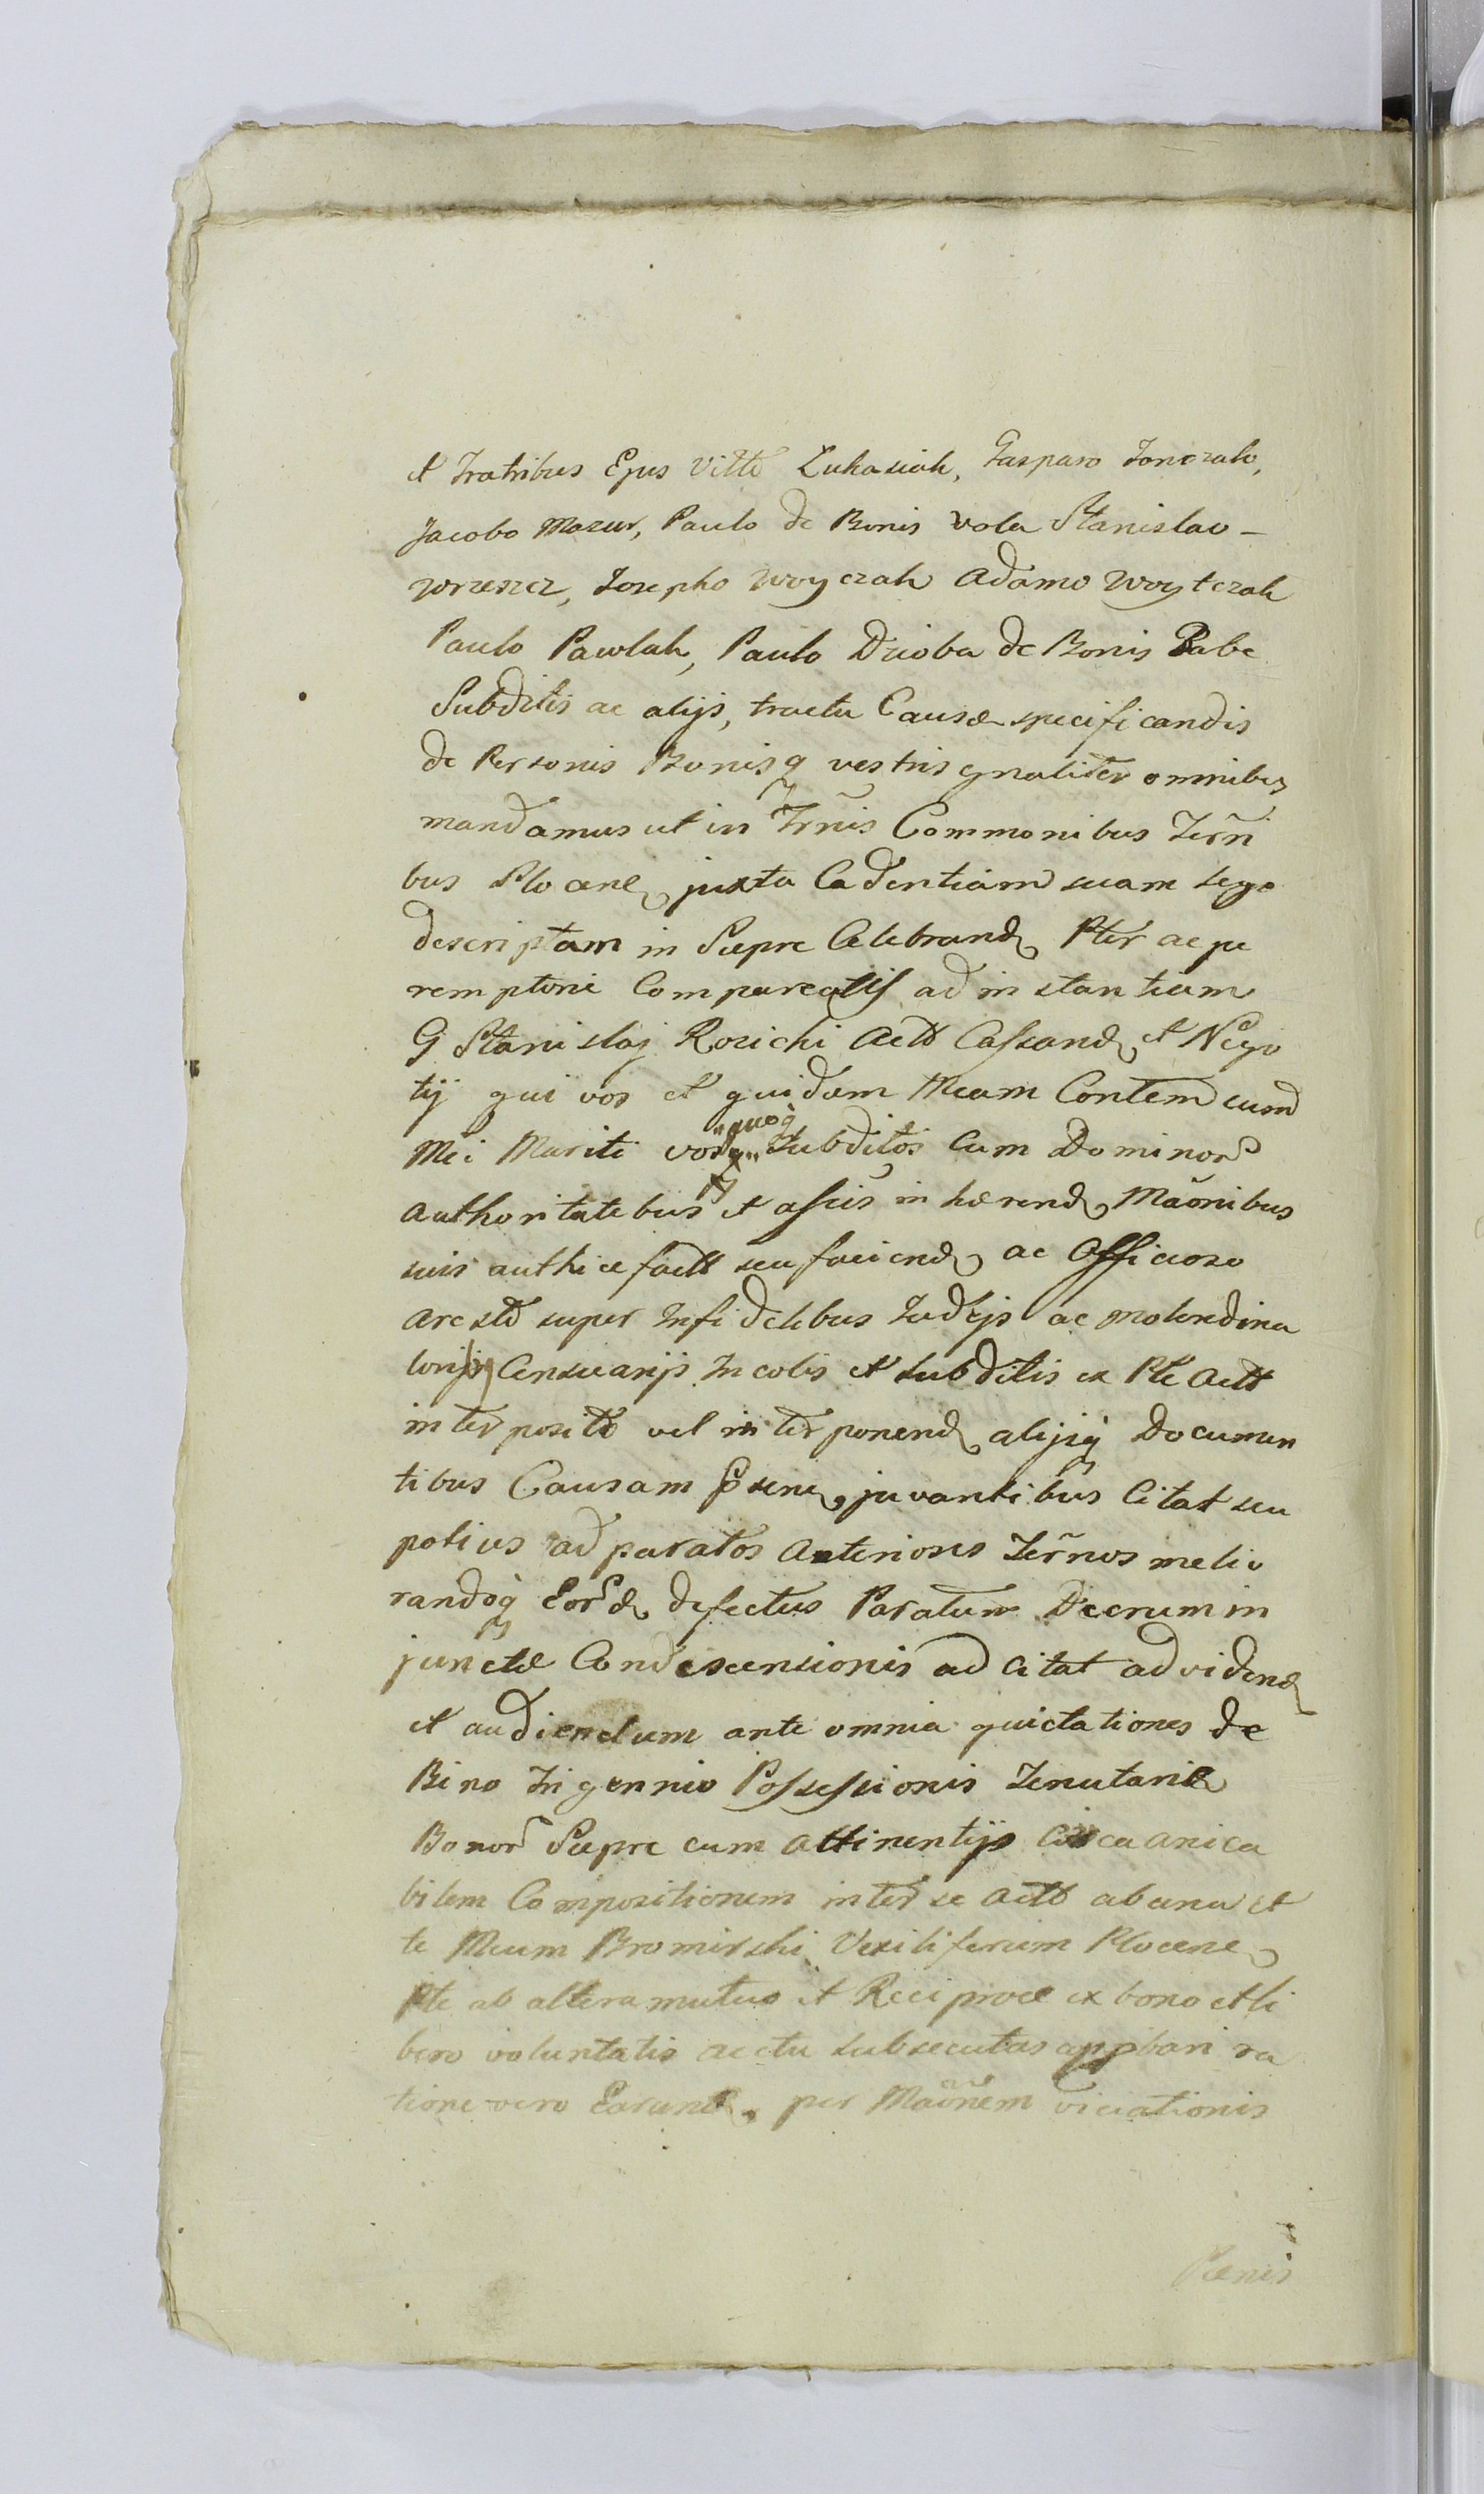 et Fratribus Ejus Vitto Lukasiak, Gasparo Jonczak,
Jacobo Mazur, Paulo de Bonis Wola Stanislao –
Wrzeszcz, Josepho Woyczak Adamo Woytczak
Paulo Pawlak, Paulo Dzioba de Bonis Babe
Subditis ac alijs, tractu Causæ specificandis
de Personis Bonisq vestris gnaliter omnibus
mandamus ut in Trnis Commonibus Terñ
bus Plocens juxta Cadentiam suam lege
descriptam in Sierpc Celebrand Pter ac pe
remptorie Compareatis ad instantiam
G Stanislaj Rosicki Actt Cassand et Nego
tij qui vos et quidem Mcum Contem cum
Mei Mariti vos quoq Subditos Cum Dominor
Authoritatebus et assiis in hærend, Maõnibus
suis authice factt seu faciend ac Officioso
arestt super Infidelibus Judejs ac molendina
torijs Censuarijs Incolis et subditis ex Pte Actt
interpositt vel interponend alijsq Documen
tibus Causam psene, juvantibus Citat seu
potius ad paratos Anteriores Terñnos melio
randoq Eord defectus Paratum Decrum in
junctæ Condescensionis ad Citat ad vidend
et audiendum ante omnia quietationes de
Bino Ingennio Possessionis Tenutariæ
Bonor Sierpc cum Attinentijs Circa amica
bilem Compositionem inter se Actt ab una et
te Mcum Bromirski Vexiliferum Plocens
Pte ab altera mutuo et Reciproce ex bono et li
bero voluntatis actu subsecutas appbari ra
tione vero Earund, per Maõnem viciationis
Pœnis